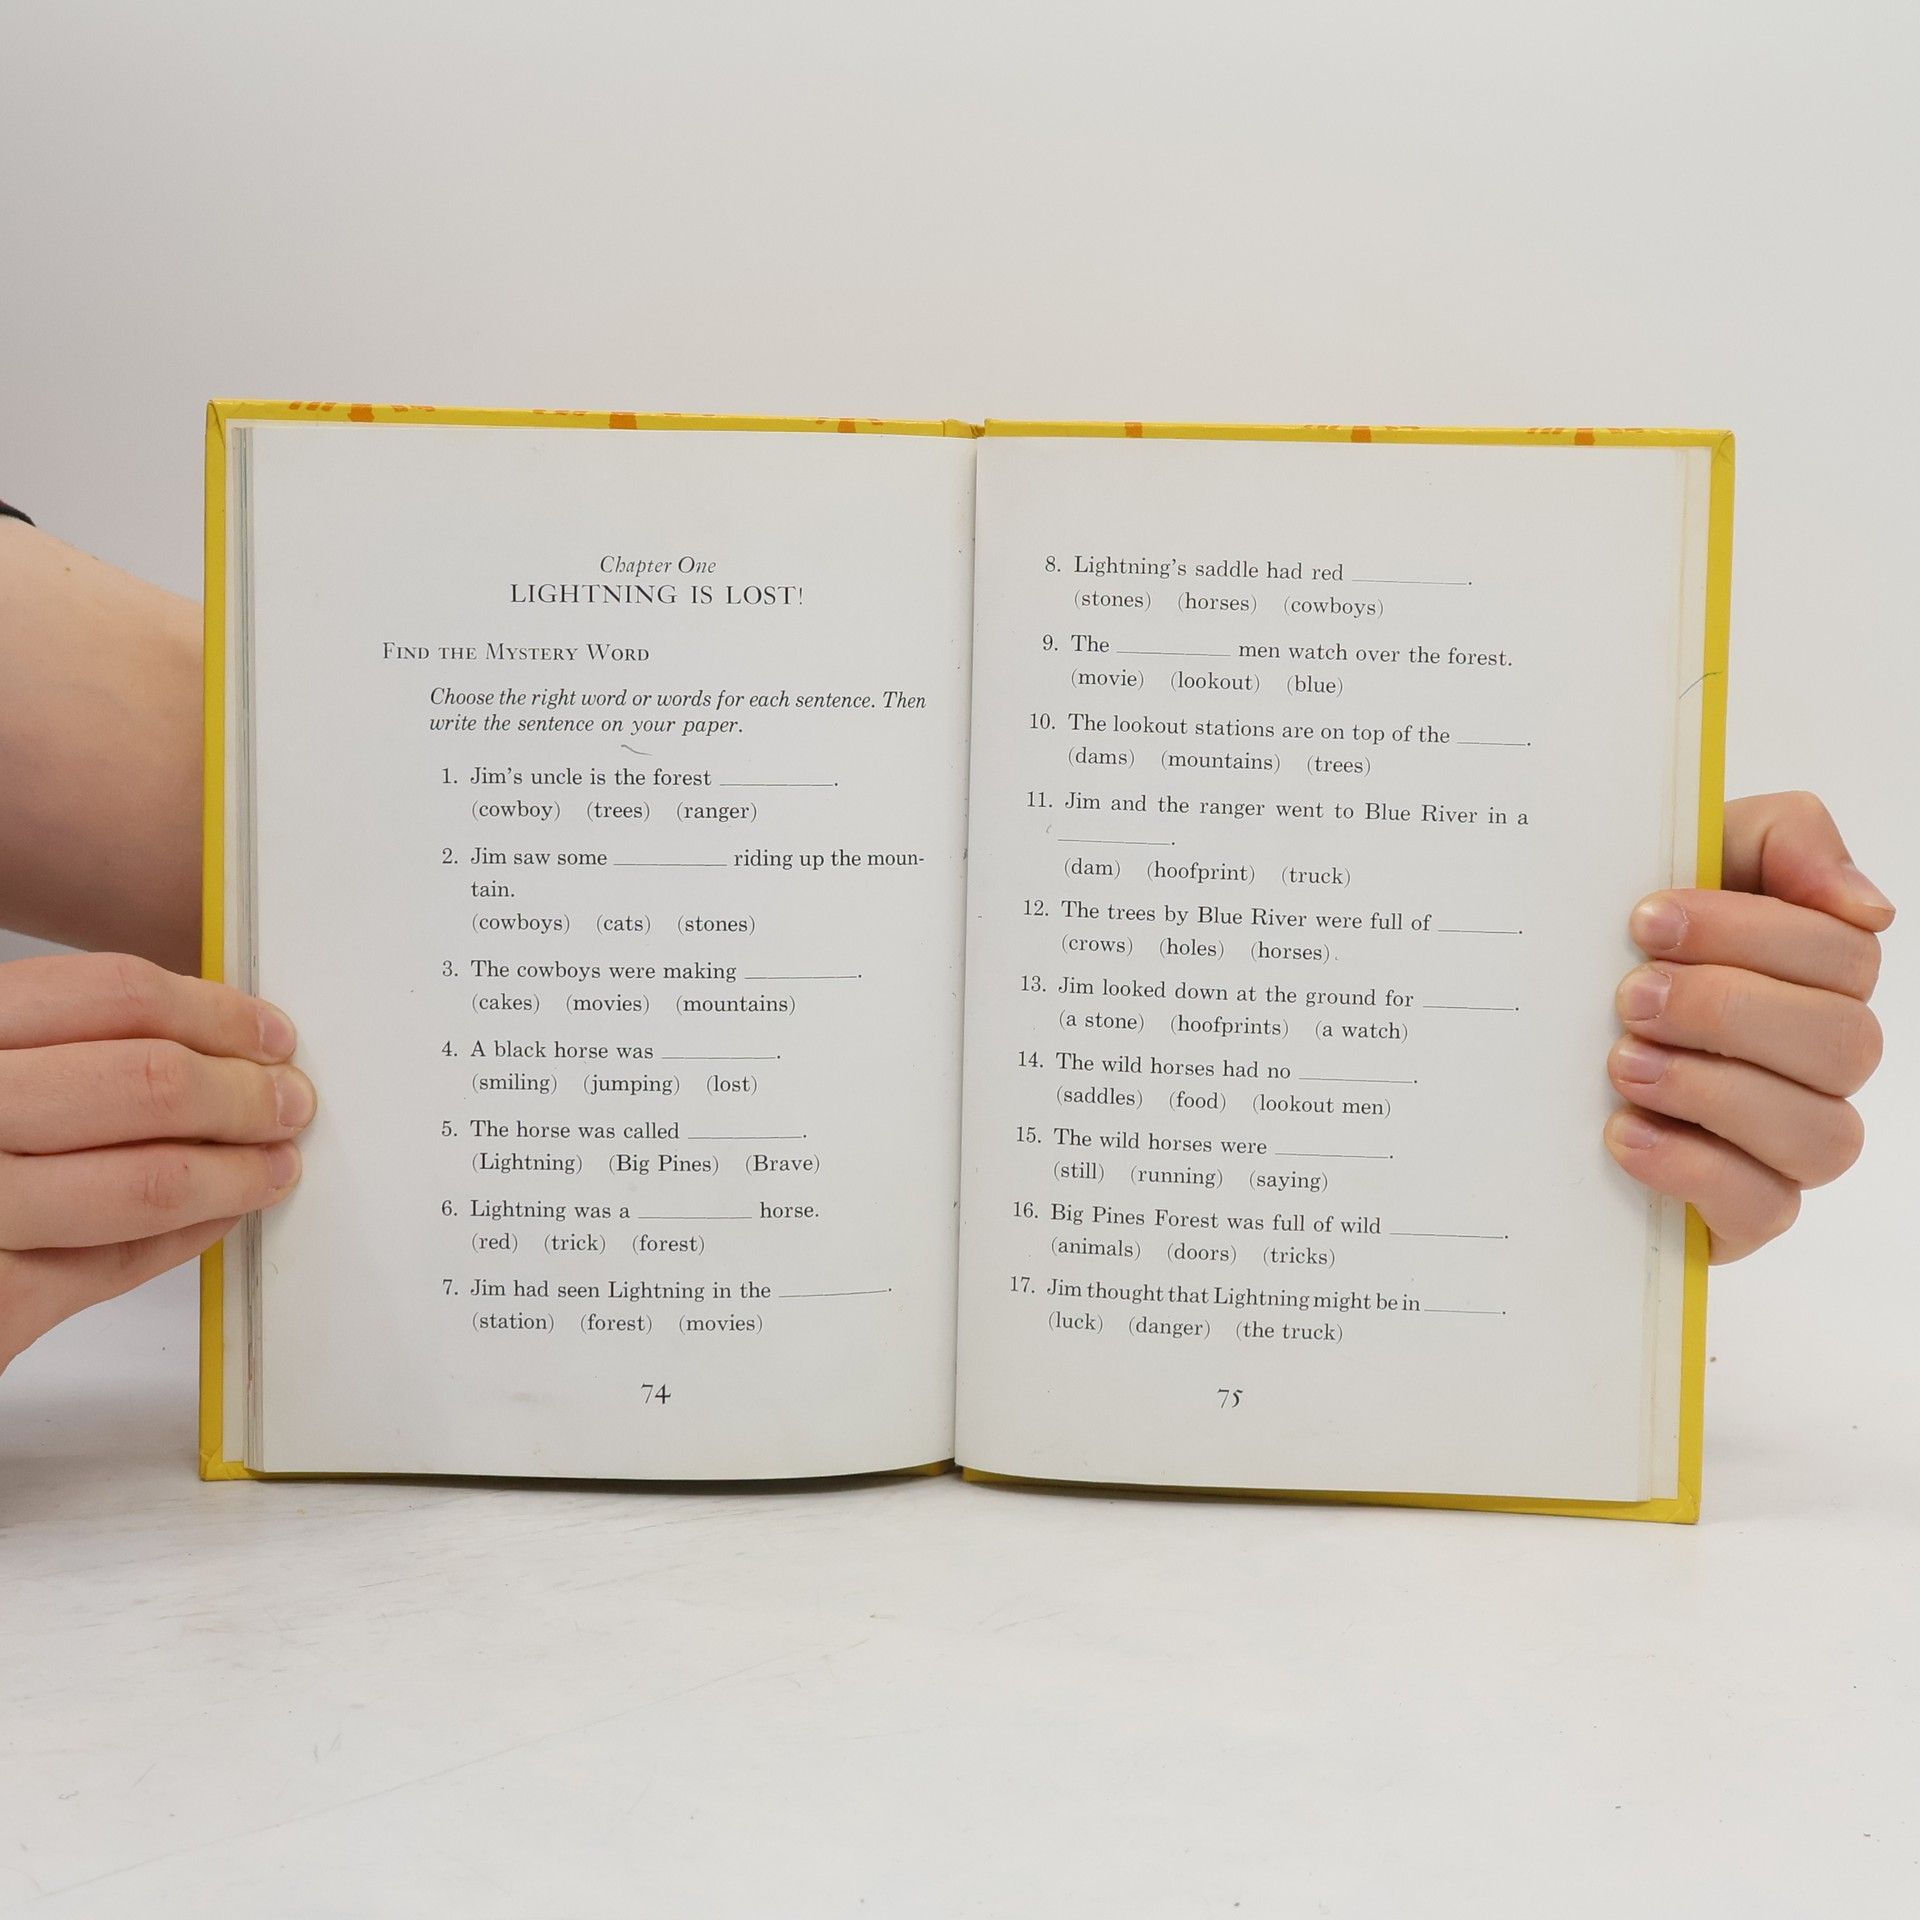 Chapter One
LIGHTNING IS LOST!
FIND THE MYSTERY WORD
Choose the right word or words for each sentence. Then
write the sentence on your paper.
1. Jim's uncle is the forest __________.
(cowboy) (trees) (ranger)
2. Jim saw some __________ riding up the moun-
tain.
(cowboys) (cats) (stones)
3. The cowboys were making __________.
(cakes) (movies) (mountains)
4. A black horse was __________.
(smiling) (jumping) (lost)
5. The horse was called __________.
(Lightning) (Big Pines) (Brave)
6. Lightning was a __________ horse.
(red) (trick) (forest)
7. Jim had seen Lightning in the __________.
(station) (forest) (movies)
74
8. Lightning's saddle had red __________.
(stones) (horses) (cowboys)
9. The __________ men watch over the forest.
(movie) (lookout) (blue)
10. The lookout stations are on top of the ______.
(dams) (mountains) (trees)
11. Jim and the ranger went to Blue River in a
__________.
(dam) (hoofprint) (truck)
12. The trees by Blue River were full of _______.
(crows) (holes) (horses)
13. Jim looked down at the ground for ________.
(a stone) (hoofprints) (a watch)
14. The wild horses had no __________.
(saddles) (food) (lookout men)
15. The wild horses were __________.
(still) (running) (saying)
16. Big Pines Forest was full of wild __________.
(animals) (doors) (tricks)
17. Jim thought that Lightning might be in _______.
(luck) (danger) (the truck)
75